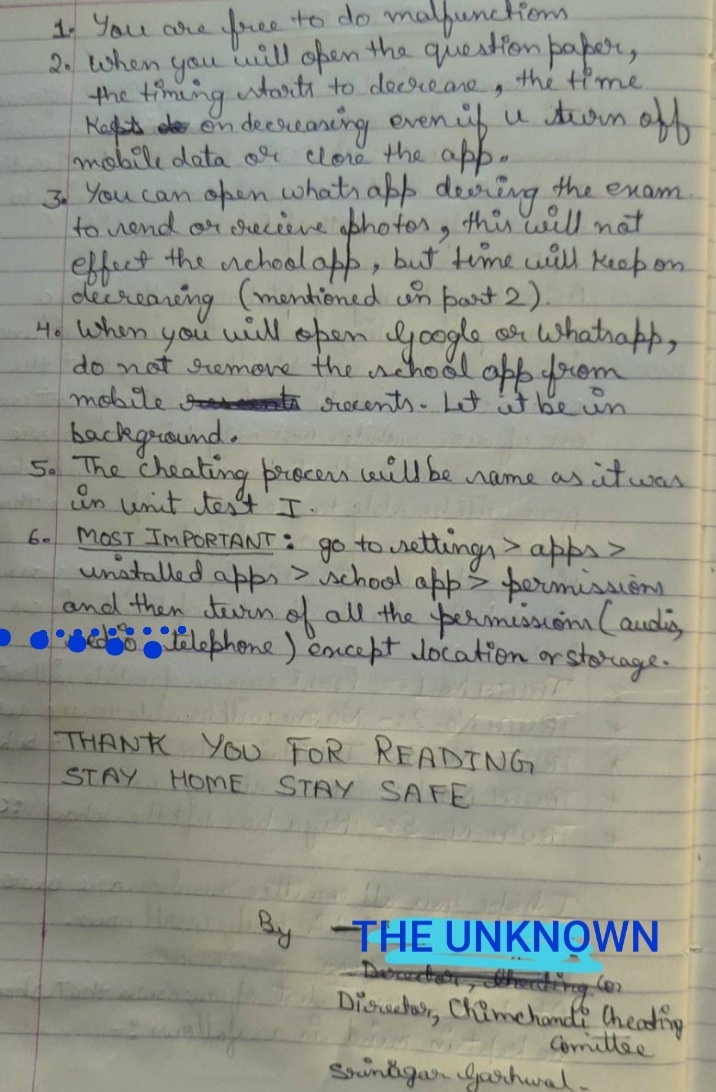 1. You are free to do malfunctions
2. When you will open the question paper,
the timing starts to decrease, the time
on decreasing even if u turn off
mobile data or close the app.
3. You can open whatsapp during the exam
to send or recieve photos, this will not
effect the school app, but time will keep on
decreasing (mentioned in part 2).
4. When you will open Google or Whatsapp,
do not remove the school app from
mobile recents. Let it be in
background.
5. The cheating process will be same as it was
in unit test I.
6. MOST IMPORTANT: go to settings > apps >
installed apps > school app > permissions
and then turn of all the permissions (audio,
telephone) except location or storage.
THANK YOU FOR READING
STAY HOME STAY SAFE
By - THE UNKNOWN
Director, Cheating Co
Director, Chimchandi Cheating
Comittee
Srinagar Garhwal.